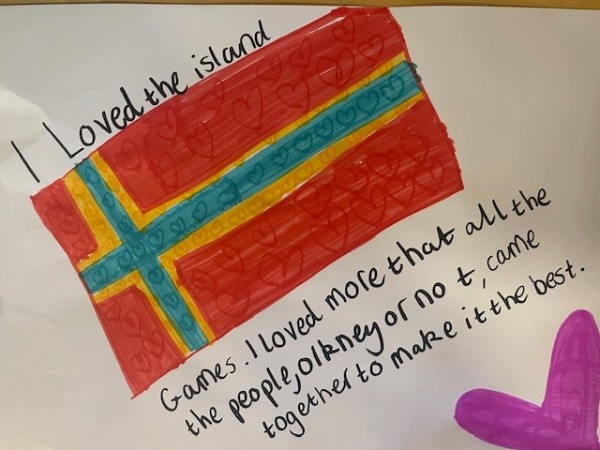 I Loved the island
Games. I loved more that all the
the people, olkney or not, came
together to make it the best.